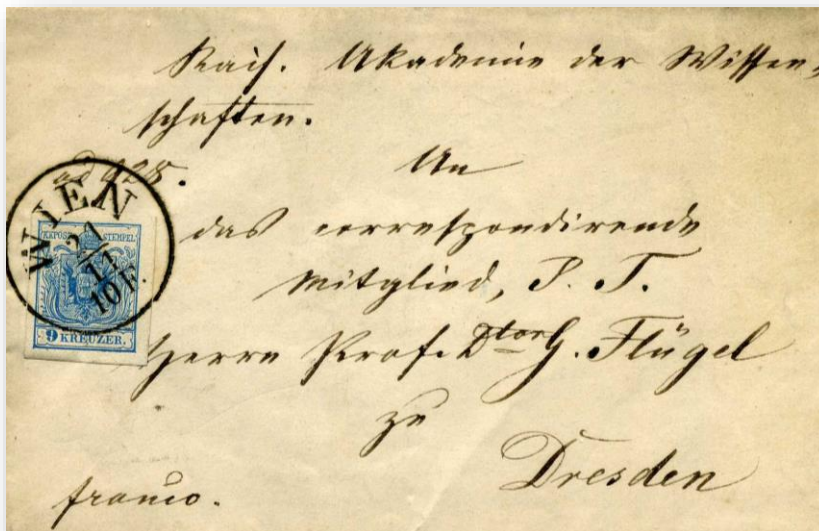 Kais. Akademie der Wissen-
schaften.
ad 928.
An
das correspondirende
Mitglied, P. T.
Herrn Prof. Dtor G. Flügel
zu
Dresden
franco.
WIEN
21/11
10 F.
STEMPEL
9 KREUZER.